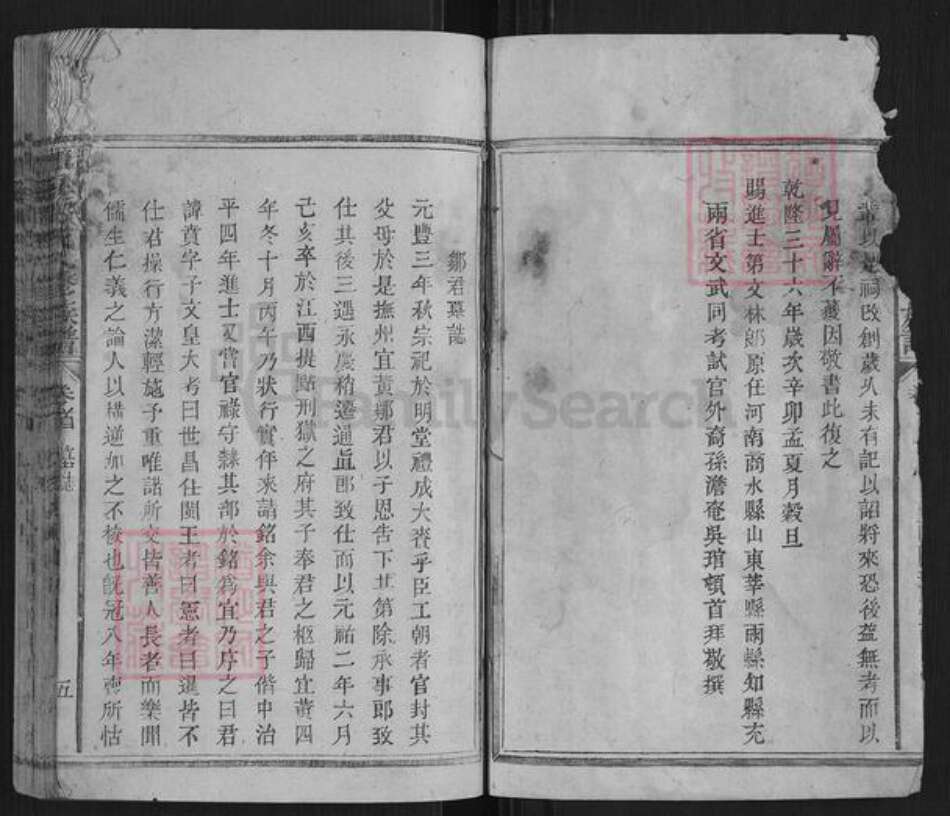 以是祠改創歲久未有記以詔將來恐後益無考而以
見屬辭不獲因敬書此復之
乾隆三十六年歲次辛卯孟夏月穀旦
賜進士第文林郎原任河南商水縣山東莘縣兩縣知縣充
兩省文武同考試官外裔孫澹菴吳琯頓首拜敬撰
鄒君墓誌
元豐三年秋宗祀於明堂禮成大賚乎臣工朝者官封其
父母於是撫州宜黃鄒君以子恩告下其第除承事郎致
仕其後三遇永慶稍遷通直郎致仕而以元祐二年六月
己亥卒於江西提點刑獄之府其子奉君之柩歸宜黃四
年冬十月丙午乃狀行實伻來請銘余與君之子偕申治
平四年進士又嘗官祿守隸其部於銘爲宜乃序之曰君
諱賁字子文皇大考曰世昌仕閩王考曰憲考曰暹皆不
仕君操行方潔輕施予重唯諾所交皆善人長者而樂聞
儒生仁義之論人以橫逆加之不校也既冠八年喪所怙
卷首
墓誌
五
FamilySearch